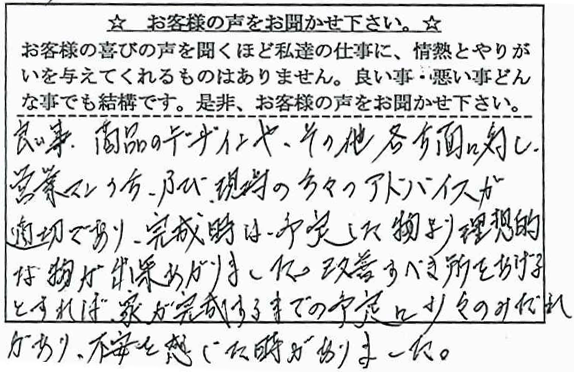 ☆ お客様の声をお聞かせ下さい。☆
お客様の喜びの声を聞くほど私達の仕事に、情熱とやりが
いを与えてくれるものはありません。良い事・悪い事どん
な事でも結構です。是非、お客様の声をお聞かせ下さい。
良い事、商品のデザインや、その他各方面に対し、
営業マンの方、及び、現場の方々のアドバイスが
適切であり、完成時は、予定した物より理想的
な物が出来あがりました。改善すべき所をあげる
とすれば、家が完成するまでの予定に少々のみだれ
があり、不安を感じた時がありました。